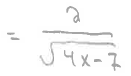 = \frac{2}{\sqrt{4x-7}}